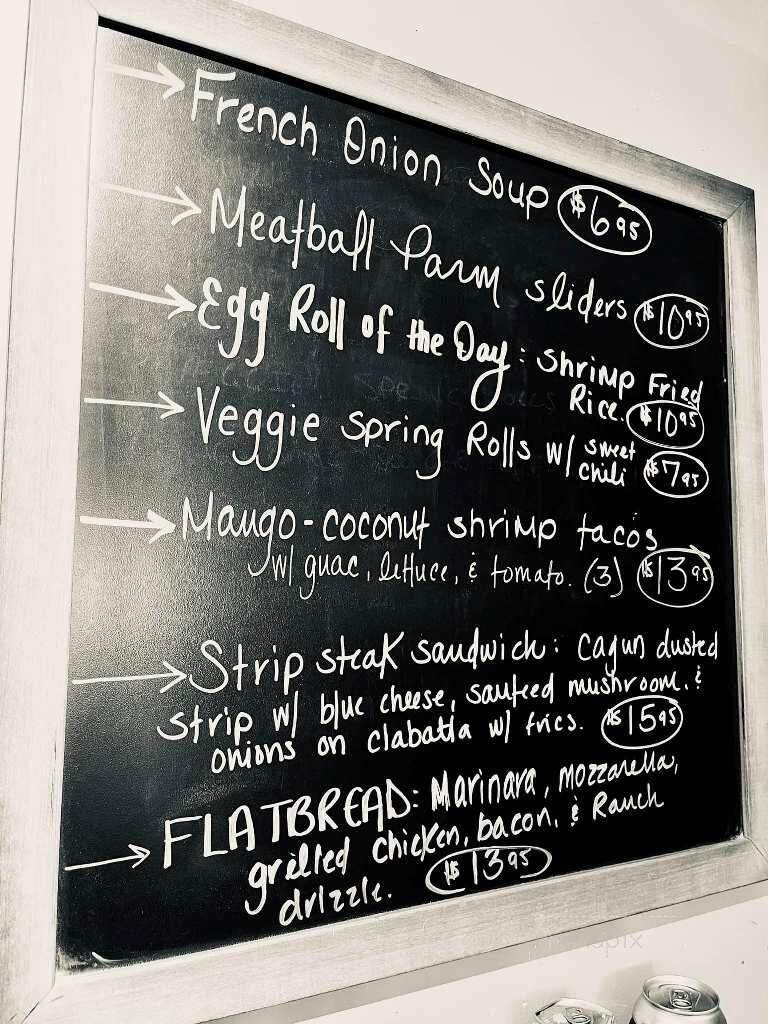 French Onion Soup $6.95
Meatball Parm sliders $10.95
Egg Roll of the Day: shrimp Fried
Rice. $10.95
Veggie Spring Rolls w/ sweet
chili $7.95
Mango-coconut shrimp tacos
w/ guac, lettuce, & tomato. (3) $13.95
Strip steak sandwich: cajun dusted
strip w/ blue cheese, sauteed mushroom, &
onions on ciabatta w/ fries. $15.95
FLATBREAD: Marinara, mozzarella,
grilled chicken, bacon, & Ranch
drizzle. $13.95